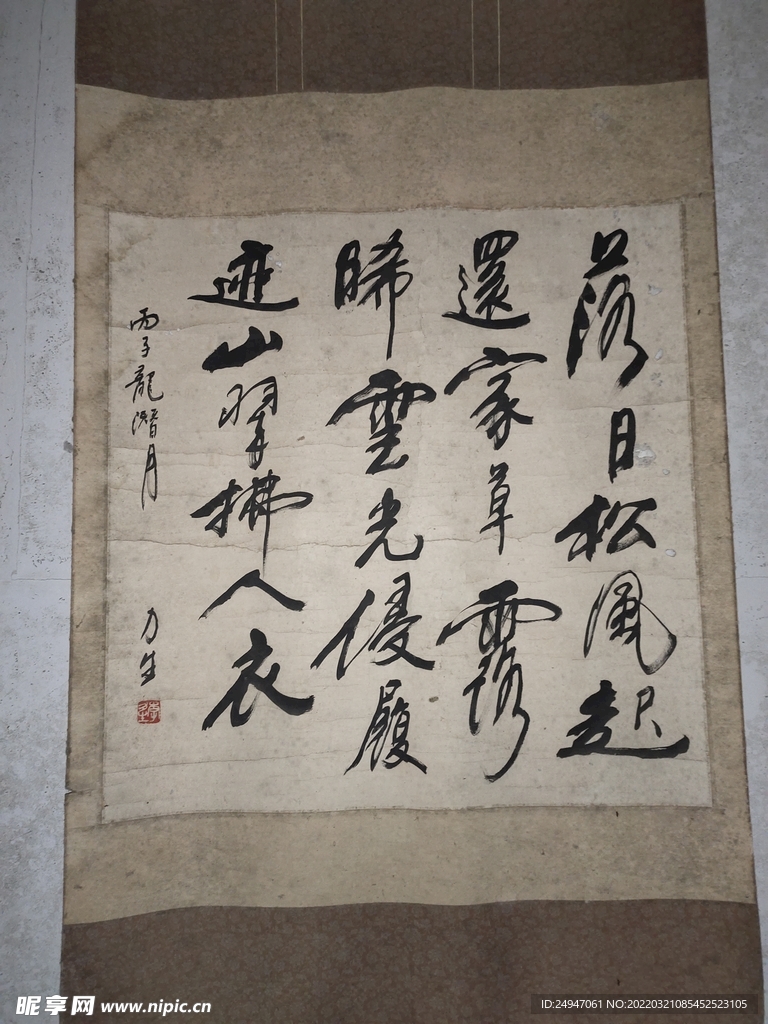 落日松風起
還家草露
晞雲光侵履
迹山翠拂人衣
丙子龍潛月
力生
昵享网 www.nipic.cn
ID:24947061 NO:20220321085452523105